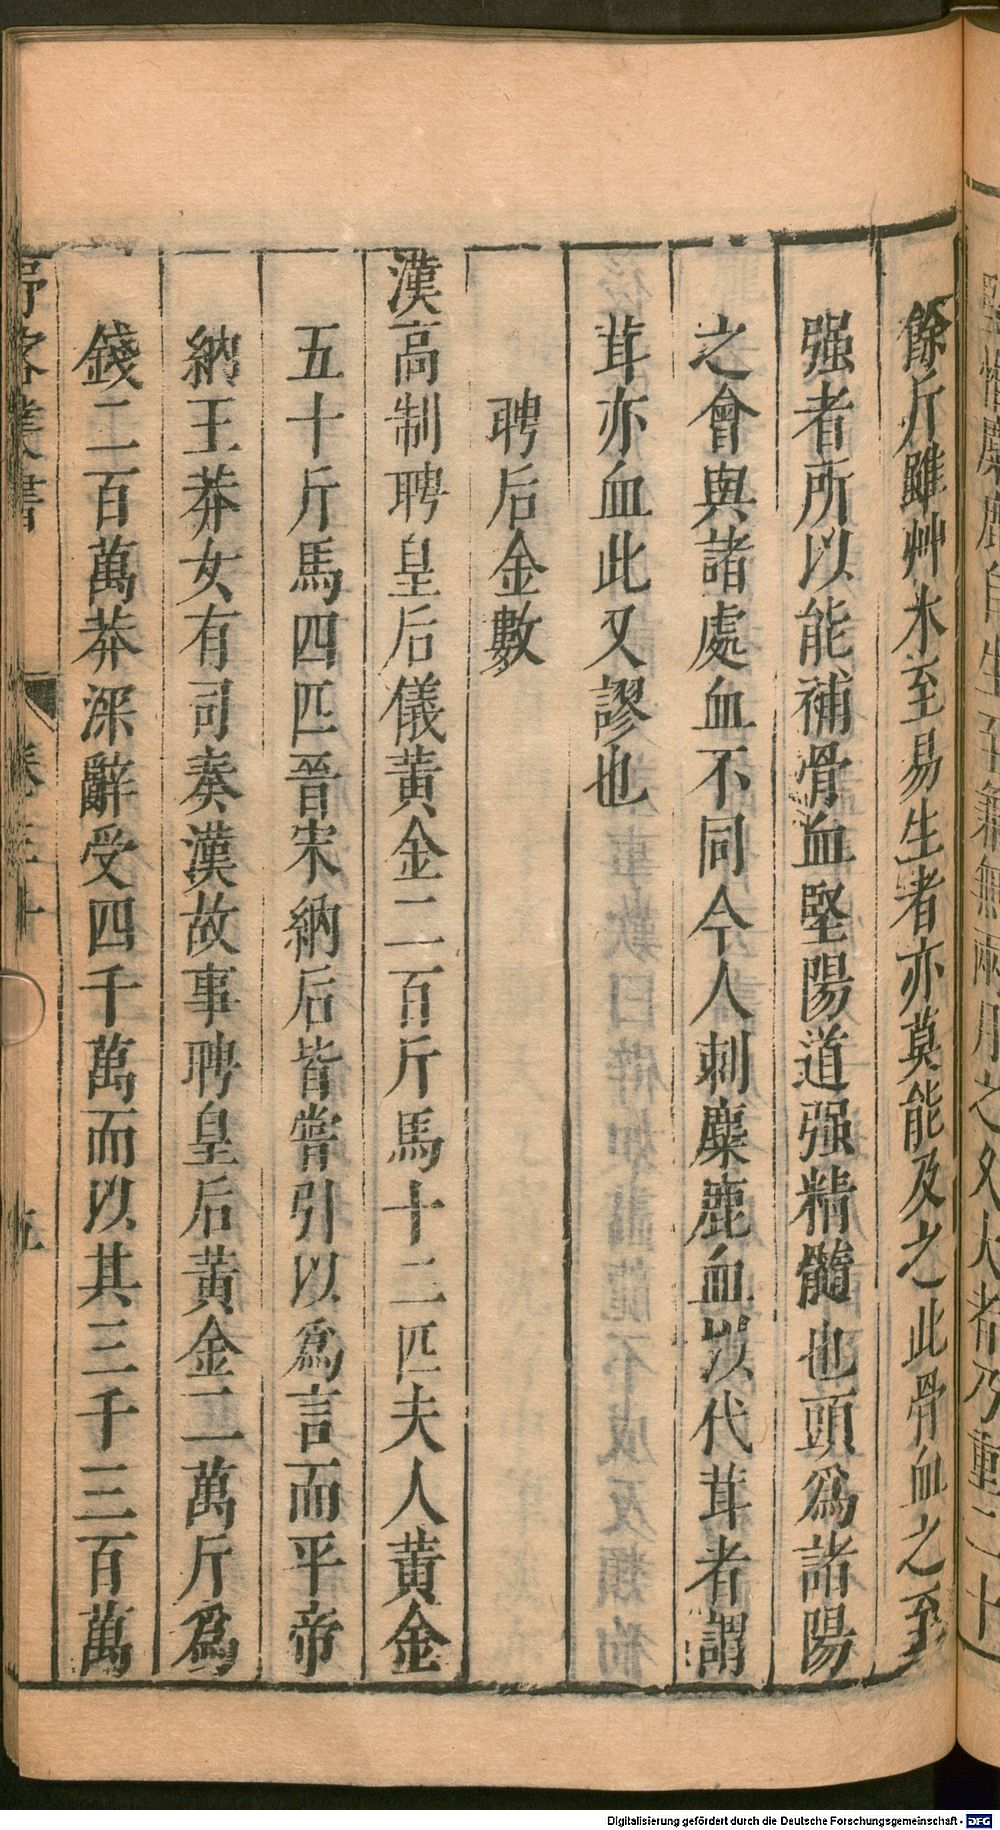 餘斤雖艸木至易生者亦莫能及之此骨血之至
强者所以能補骨血堅陽道强精髓也頭爲諸陽
之會與諸處血不同今人刺麋鹿血以代茸者謂
茸亦血此又謬也
聘后金數
漢高制聘皇后儀黃金二百斤馬十二匹夫人黃金
五十斤馬四匹晉宋納后皆嘗引以爲言而平帝
納王莽女有司奏漢故事聘皇后黃金二萬斤爲
錢二百萬莽深辭受四千萬而以其三千三百萬
Digitalisierung gefördert durch die Deutsche Forschungsgemeinschaft - DFG